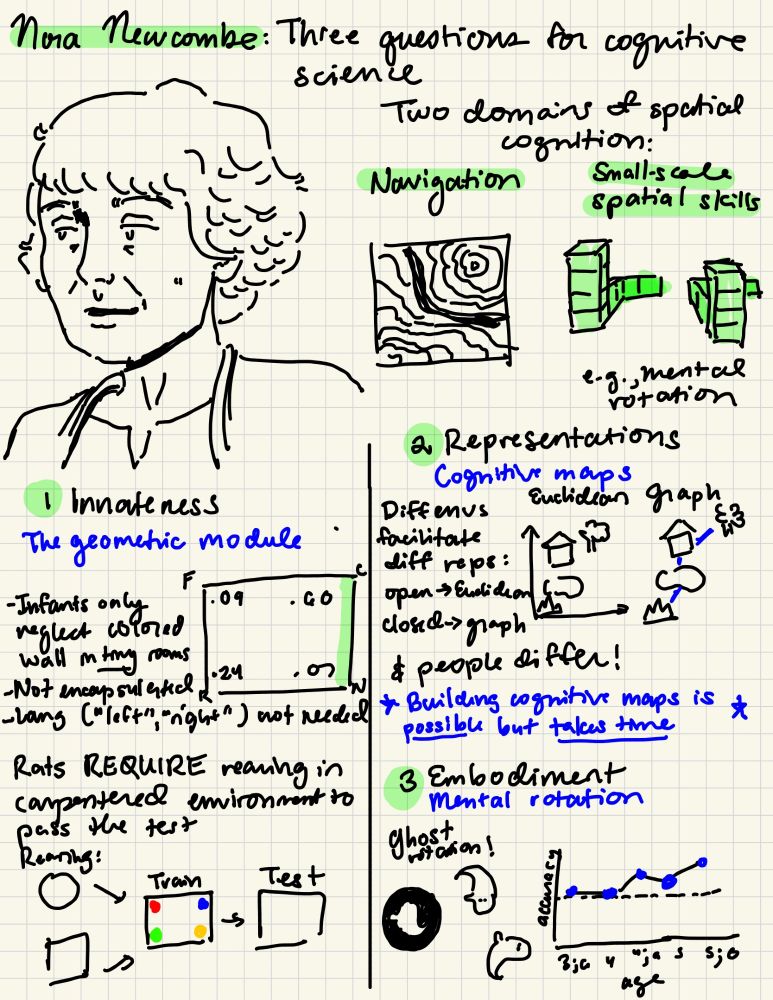 Nora Newcombe: Three questions for cognitive
science
Two domains of spatial
cognition:
Navigation
Small-scale
spatial skills
e.g., mental
rotation
1 Innateness
The geometric module
- Infants only
neglect colored
wall in tiny rooms
- Not encapsulated
- Lang ("left", "right") not needed
F
C
.09
.60
.24
.07
R
N
Rats REQUIRE rearing in
carpentered environment to
pass the test
Rearing:
Train
Test
2 Representations
Cognitive maps
Diff envs
facilitate
diff reps:
open → Euclidean
closed → graph
Euclidean
graph
& people differ!
* Building cognitive maps is
possible but takes time *
3 Embodiment
Mental rotation
Ghost
rotation!
accuracy
3;6
4
4;6
5
5;6
age